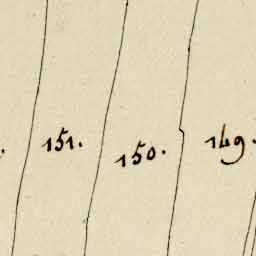 151. 150. 149.